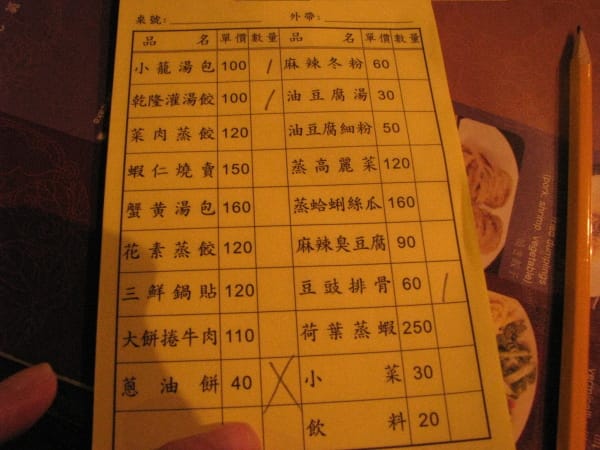 桌號：　外帶：
品名 單價 數量 品名 單價 數量
小籠湯包 100 / 麻辣冬粉 60
乾隆灌湯餃 100 / 油豆腐湯 30
菜肉蒸餃 120 油豆腐細粉 50
蝦仁燒賣 150 蒸高麗菜 120
蟹黃湯包 160 蒸蛤蜊絲瓜 160
花素蒸餃 120 麻辣臭豆腐 90
三鮮鍋貼 120 豆豉排骨 60 /
大餅捲牛肉 110 荷葉蒸蝦 250
蔥油餅 40 X 小菜 30
飲料 20
fried dumplings
(pork, shrimp, vegetable)